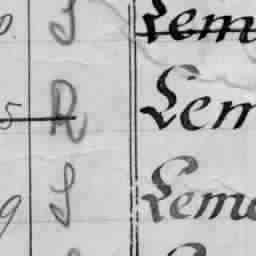 S Lem
R Lem
9 S Leme